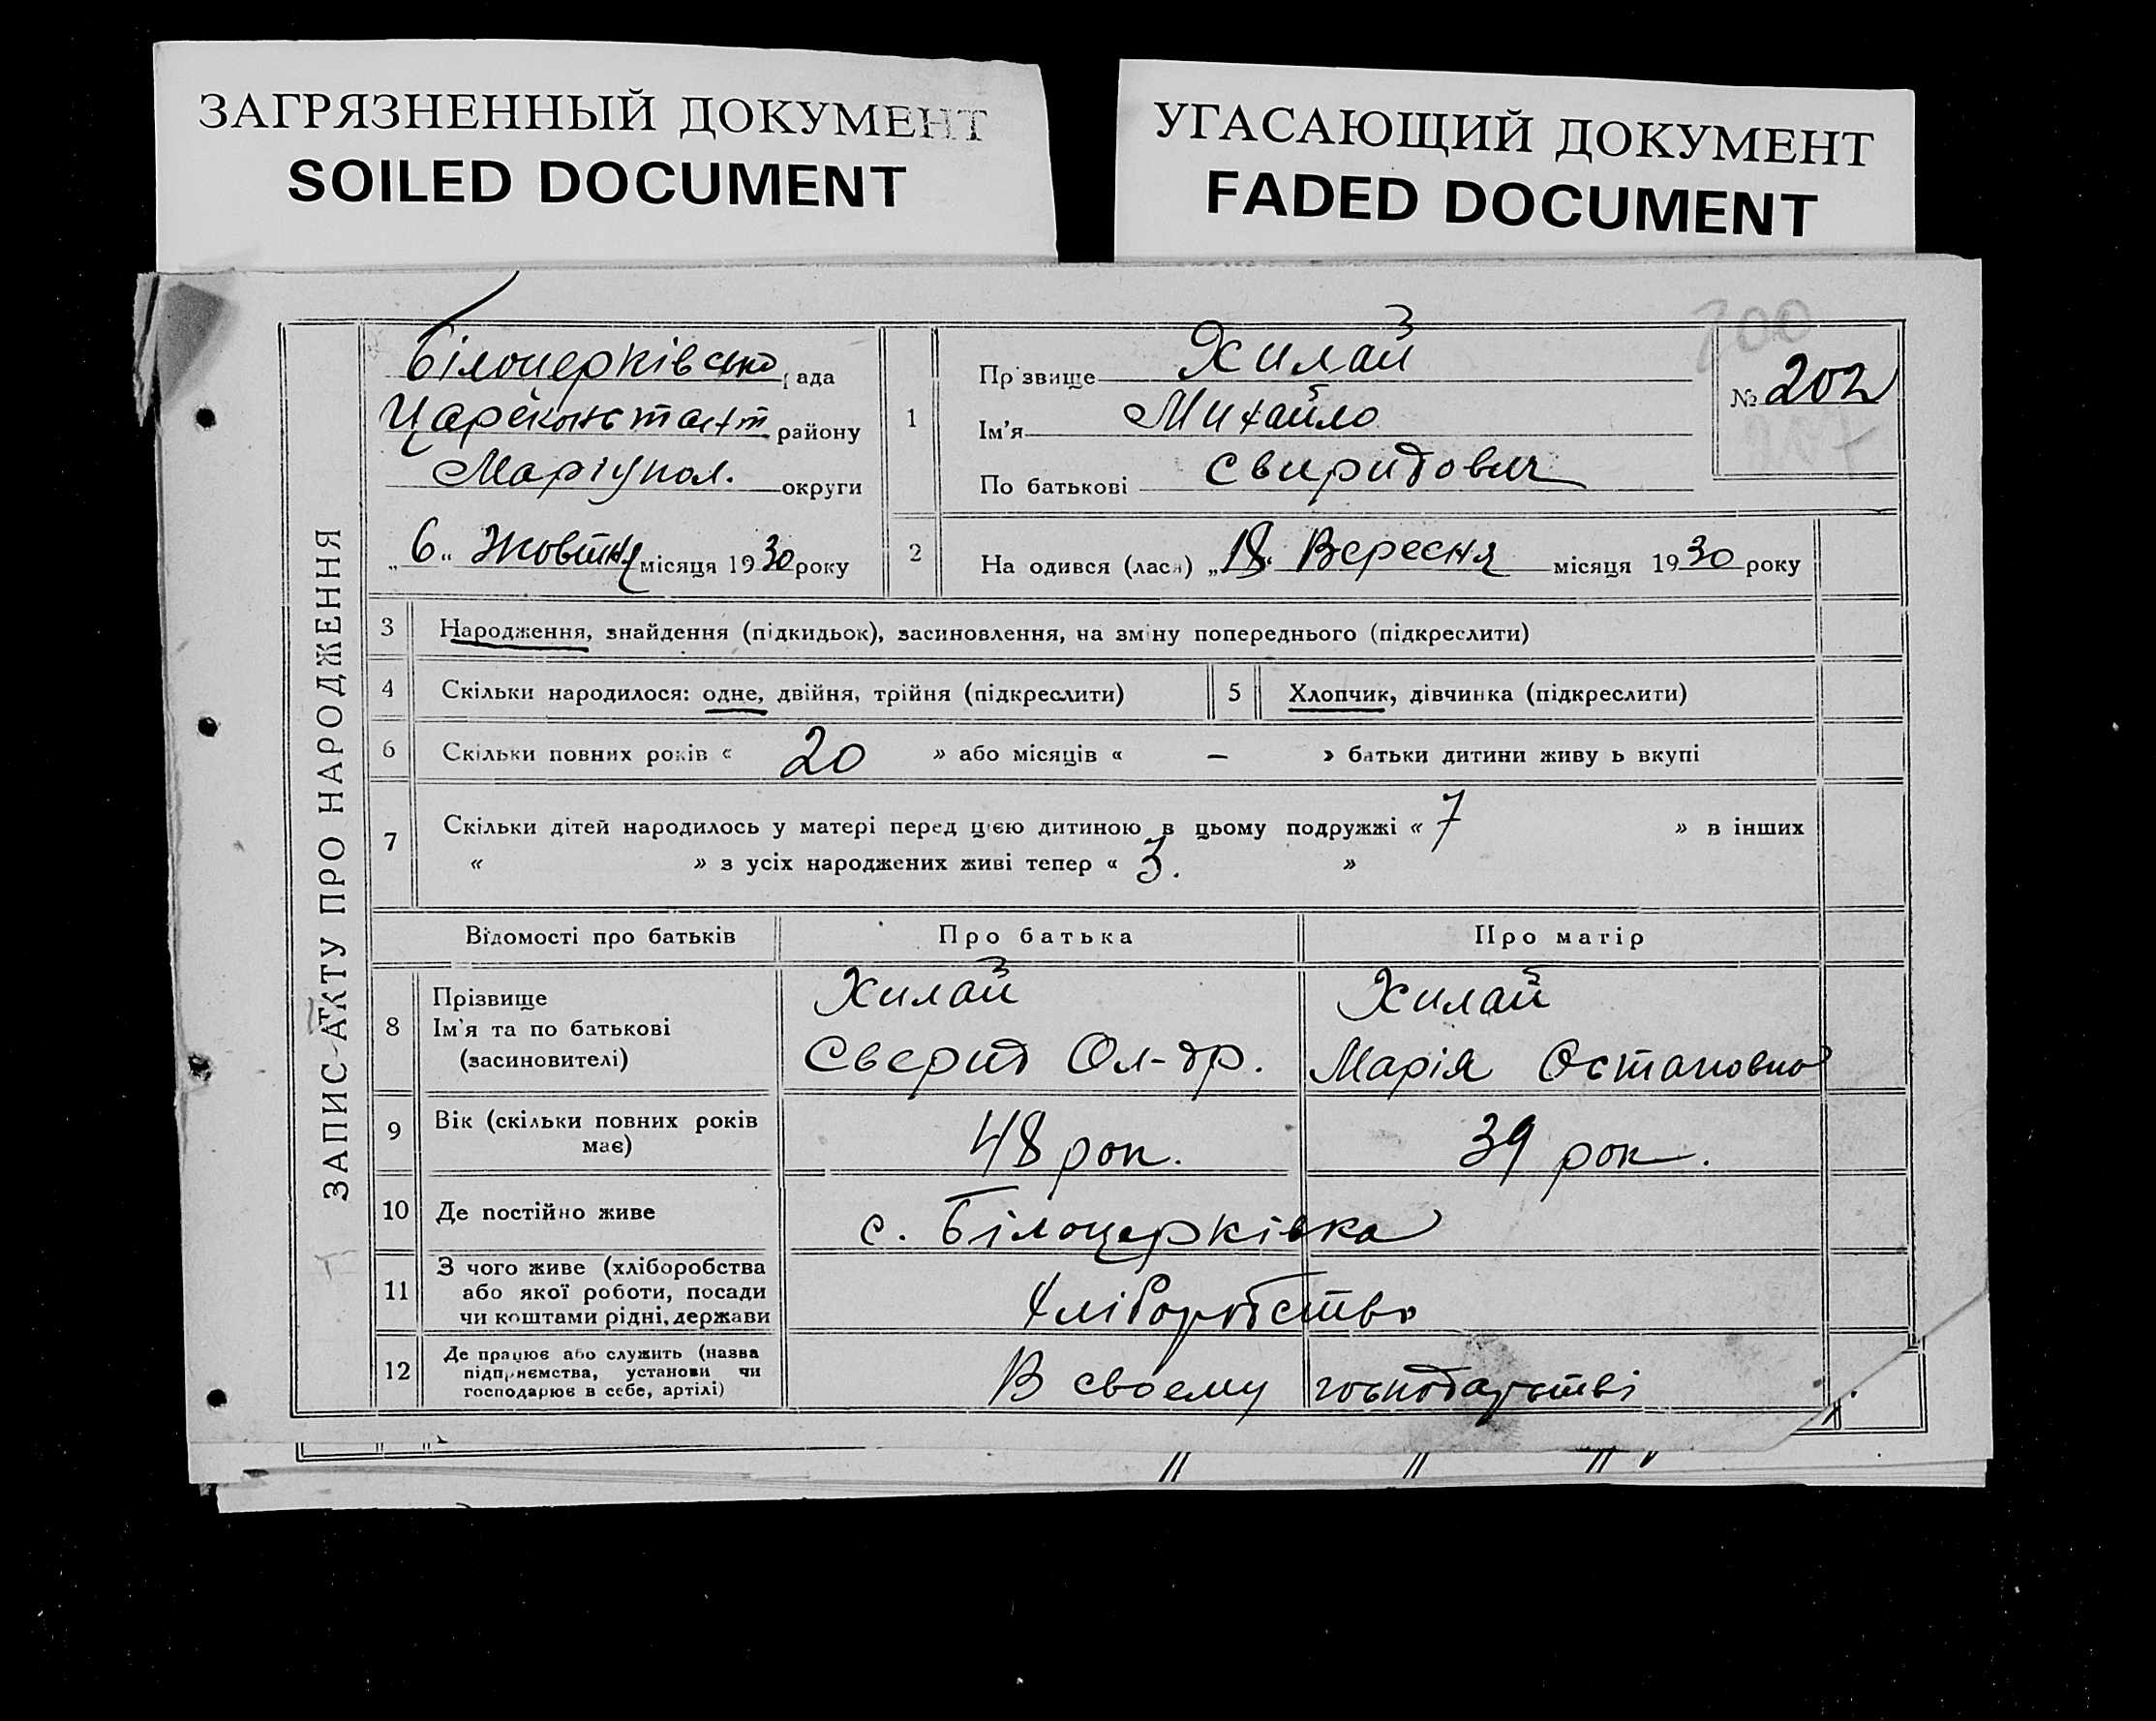 ЗАГРЯЗНЕННЫЙ ДОКУМЕНТ
SOILED DOCUMENT
УГАСАЮЩИЙ ДОКУМЕНТ
FADED DOCUMENT
ЗАПИС АКТУ ПРО НАРОДЖЕННЯ
Білоцерківсько рада
Царекостант району
Маріупол. округи
„6" Жовтня місяця 1930 року
200
№ 202
207
1 Прізвище Хилай
Ім'я Михайло
По батькові Свиридович
2 Народився (лася) „18" Вересня місяця 1930 року
3 Народження, знайдення (підкидьок), засиновлення, на зміну попереднього (підкреслити)
4 Скільки народилося: одне, двійня, трійня (підкреслити) 5 Хлопчик, дівчинка (підкреслити)
6 Скільки повних років « 20 » або місяців « – » батьки дитини живуть вкупі
7 Скільки дітей народилось у матері перед цією дитиною в цьому подружжі « 7 » в інших
« » з усіх народжених живі тепер « 3. »
Відомості про батьків Про батька Про матір
8 Прізвище Хилай Хилай
Ім'я та по батькові Сверид Ол-др. Марія Остаповна
(засиновителі)
9 Вік (скільки повних років має) 48 рок. 39 рок.
10 Де постійно живе с. Білоцерківка
11 З чого живе (хліборобства
або якої роботи, посади Хліборобство
чи коштами рідні, держави
12 Де працює або служить (назва
підприємства, установи чи В своему господарстві
господарює в себе, артілі)